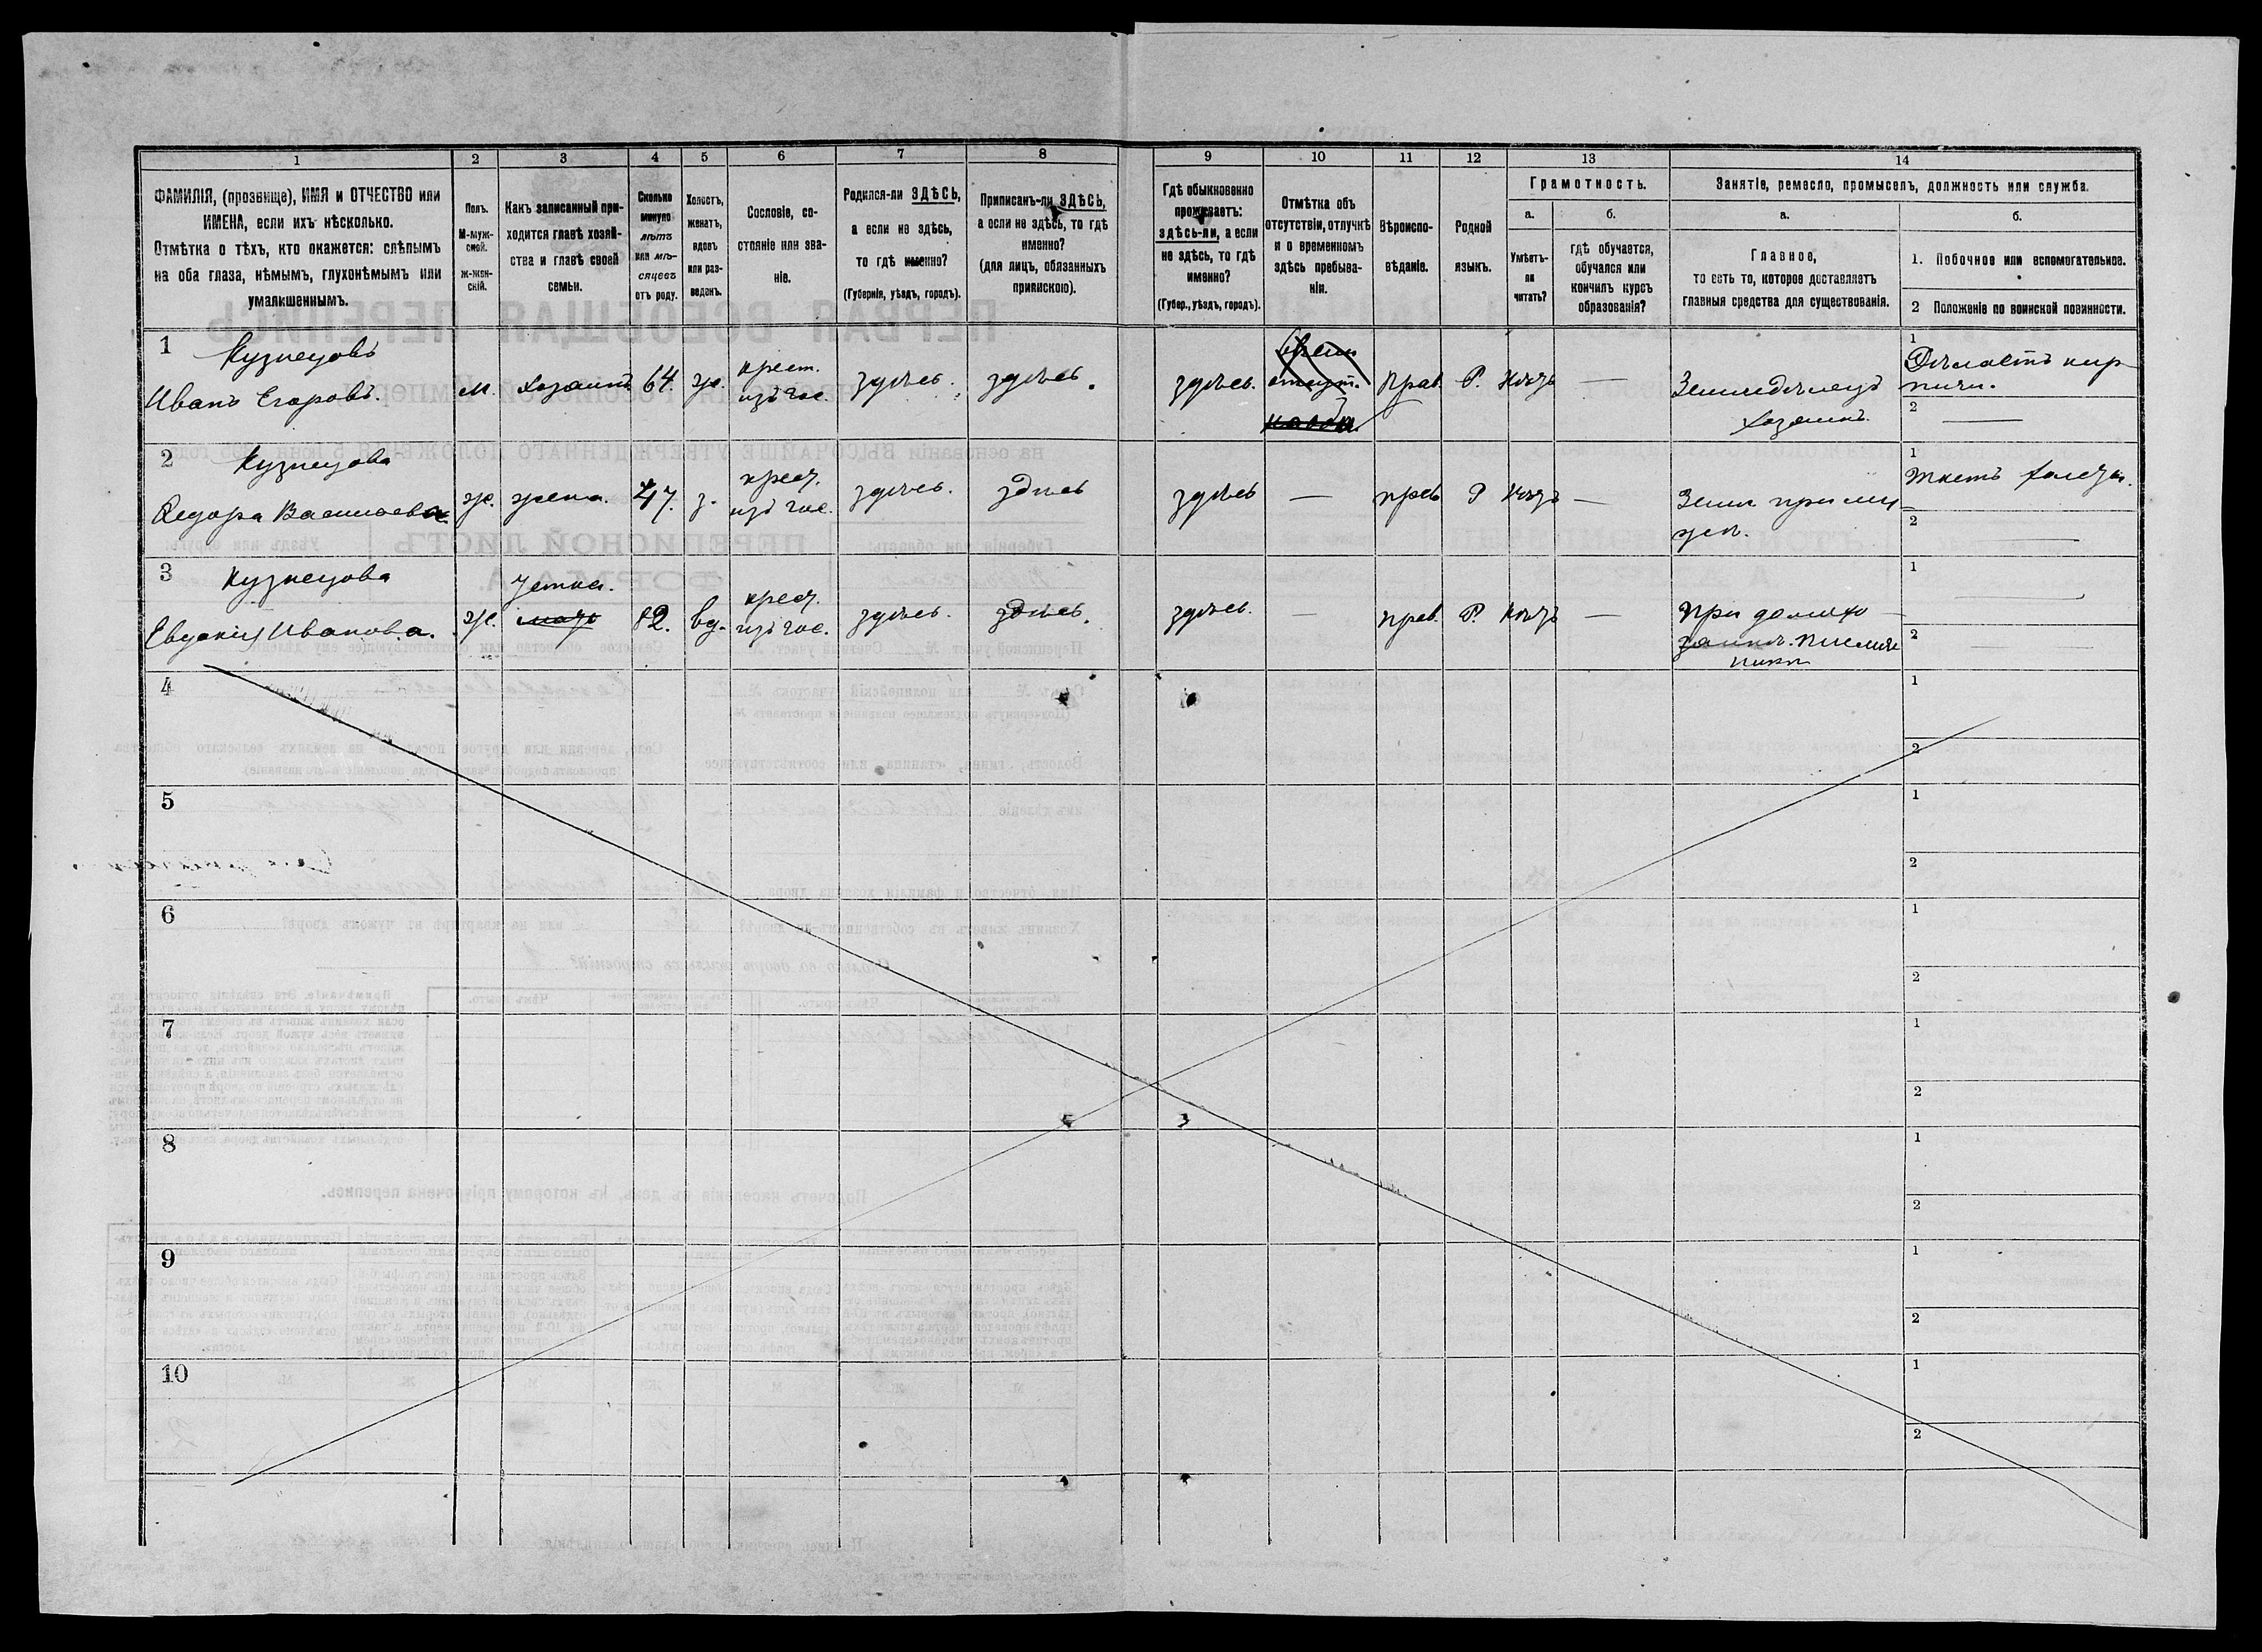 1
2
3
4
5
6
7
8
9
10
11
12
13
14
ФАМИЛІЯ, (прозвище), ИМЯ и ОТЧЕСТВО или
ИМЕНА, если ихъ нѣсколько.
Отмѣтка о тѣхъ, кто окажется: слѣпымъ
на оба глаза, нѣмымъ, глухонѣмымъ или
умалишеннымъ.
Полъ.
М-муж-
ской.
ж-жен-
скій.
Какъ записанный при-
ходится главѣ хозяй-
ства и главѣ своей
семьи.
Сколько
минуло
лѣтъ
или мѣ-
сяцевъ
отъ роду.
Холостъ,
женатъ,
вдовъ
или раз-
веденъ.
Сословіе, со-
стояніе или зва-
ніе.
Родился-ли ЗДѢСЬ,
а если не здѣсь,
то гдѣ именно?
(Губернія, уѣздъ, городъ).
Приписанъ-ли ЗДѢСЬ,
а если не здѣсь, то гдѣ
именно?
(для лицъ, обязанныхъ
припискою).
Гдѣ обыкновенно
проживаетъ:
здѣсь-ли, а если
не здѣсь, то гдѣ
именно?
(Губер., уѣздъ, городъ).
Отмѣтка объ
отсутствіи, отлучкѣ
и о временномъ
здѣсь пребыва-
ніи.
Вѣроиспо-
вѣданіе.
Родной
языкъ.
Грамотность.
а.
б.
Умѣетъ-
ли
читать?
гдѣ обучается,
обучался или
кончилъ курсъ
образованія?
Занятіе, ремесло, промыселъ, должность или служба.
а.
б.
Главное,
то есть то, которое доставляетъ
главныя средства для существованія.
1. Побочное или вспомогательное.
2 Положеніе по воинской повинности.
1
Кузнецовъ
Иванъ Егоровъ.
м.
хозяинъ
64.
ж.
крест.
изъ гос.
здѣсь.
здѣсь.
здѣсь.
прав.
Р.
нѣтъ
—
Земледѣлецъ
хозяинъ.
1
Дѣлаетъ кир-
пичи.
2
—
2
Кузнецова
Ѳедора Васильева.
ж.
жена.
47.
з.
крест.
изъ гос.
здѣсь.
здѣсь
здѣсь
—
прав
Р
нѣтъ
—
Земл при му-
жѣ.
1
Ткетъ холсты.
2
—
3
Кузнецова
Евдокія Иванова.
ж.
тетка.
мать
82.
вд.
крест.
изъ гос.
здѣсь.
здѣсь.
здѣсь.
—
прав.
Р.
нѣтъ
—
При домохо
заинѣ. племян
никѣ
1
—
2
—
4
1
2
5
1
2
6
1
2
7
1
2
8
1
2
9
1
2
10
1
2